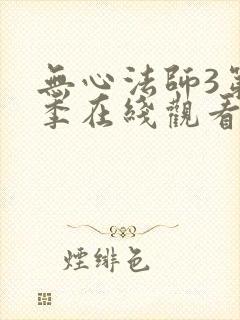 無心法師3第
季在綫觀看
煙緋色